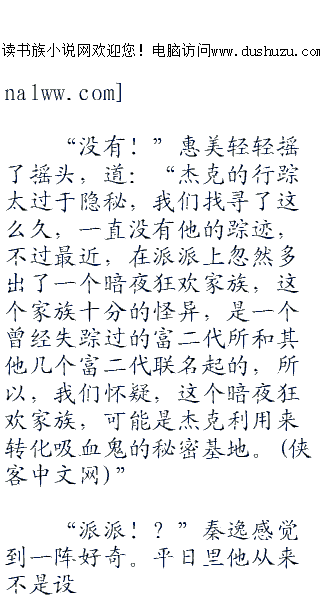 读书族小说网欢迎您！电脑访问www.dushuzu.com
nalww.com]
“没有！”惠美轻轻摇
了摇头，道：“杰克的行踪
太过于隐秘，我们找寻了这
么久，一直没有他的踪迹，
不过最近，在派派上忽然多
出了一个暗夜狂欢家族，这
个家族十分的怪异，是一个
曾经失踪过的富二代所和其
他几个富二代联名起的，所
以，我们怀疑，这个暗夜狂
欢家族，可能是杰克利用来
转化吸血鬼的秘密基地。(侠
客中文网)”
“派派！？”秦逸感觉
到一阵好奇。平日里他从来
不是设